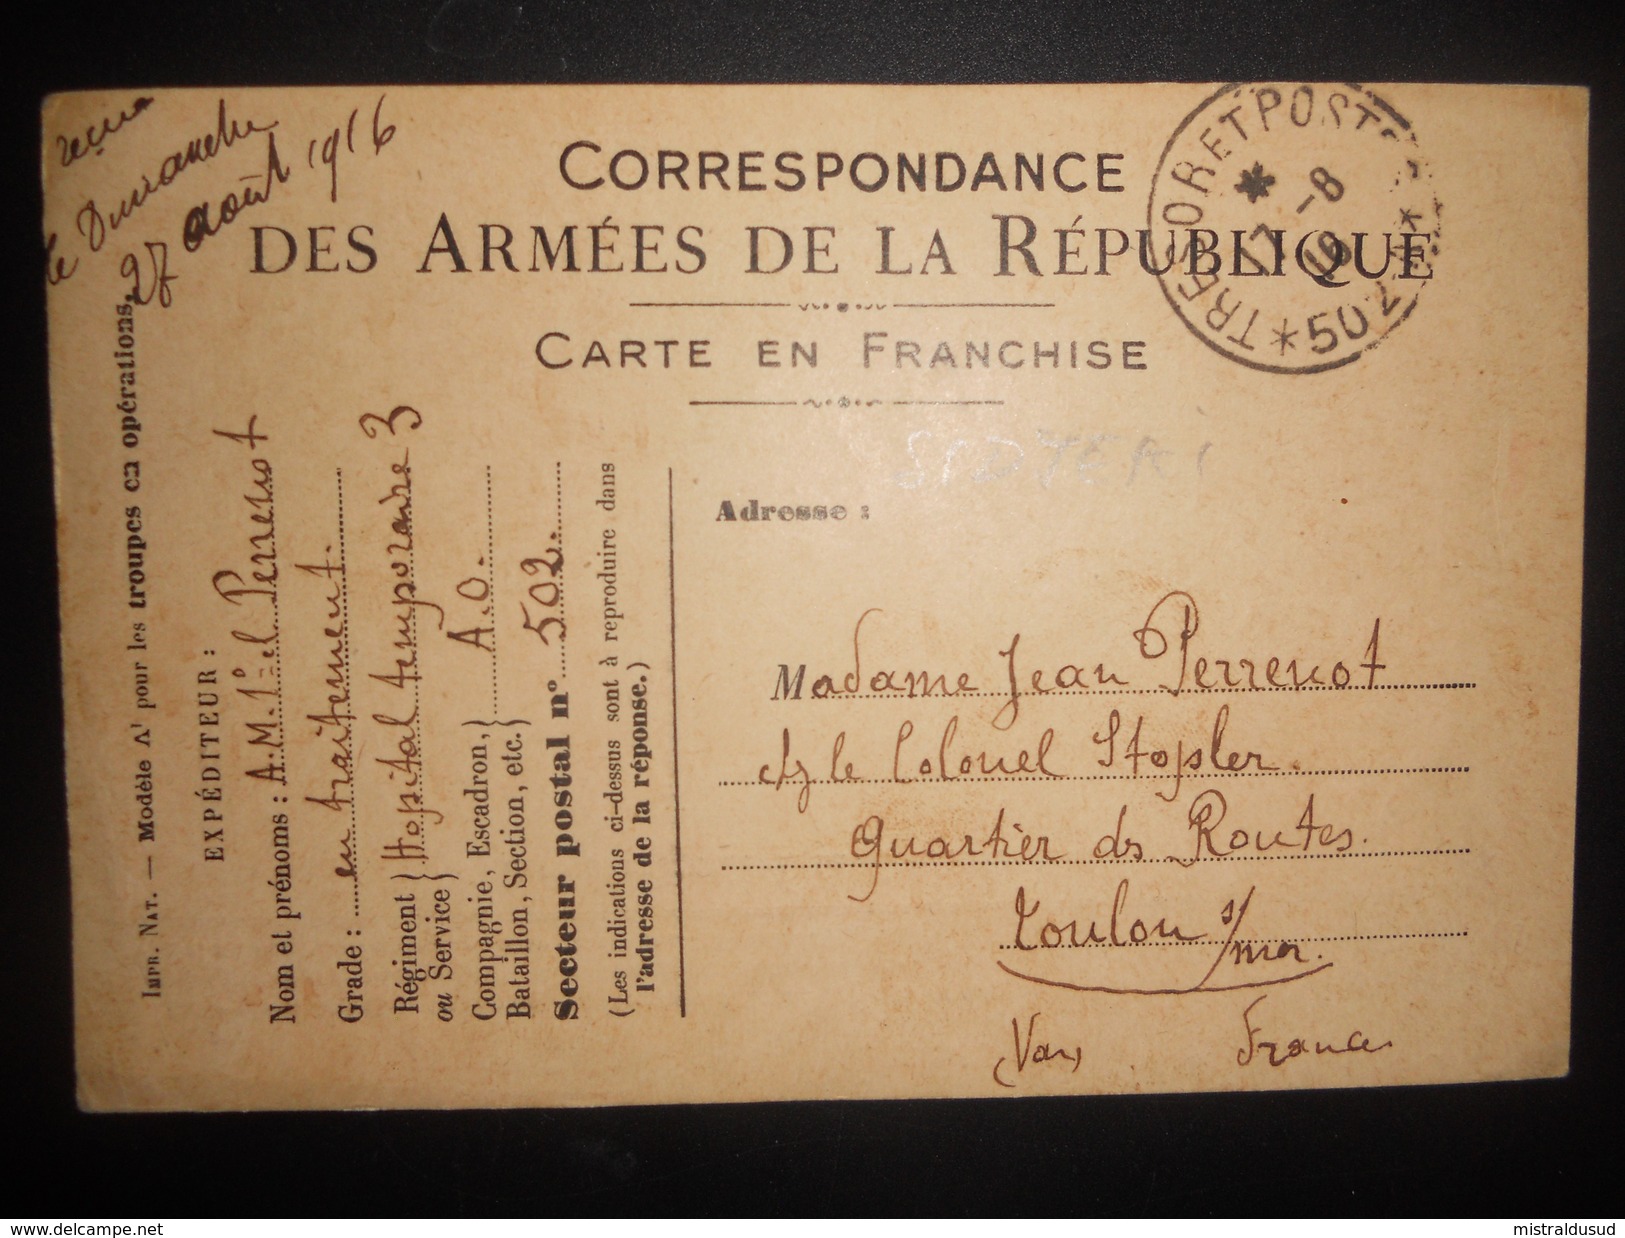 reçue
le Dimanche
27 août 1916
CORRESPONDANCE
DES ARMÉES DE LA RÉPUBLIQUE
CARTE EN FRANCHISE
TRESOR ET POSTES
* 502 *
-8
16
IMPR. NAT. — Modèle A¹ pour les troupes en opérations.
EXPÉDITEUR :
Nom et prénoms : A.M. 1° el Perrenot
Grade : en traitement.
Régiment ou Service } Hopital temporaire 3
Compagnie, Escadron, Bataillon, Section, etc. } A.O.
Secteur postal n° 502.
(Les indications ci-dessus sont à reproduire dans
l'adresse de la réponse.)
Adresse :
Madame Jean Perrenot
chz le Colonel Stopler.
Quartier ds Routes.
Toulon s/mer.
Var France
www.delcampe.net
mistraldusud